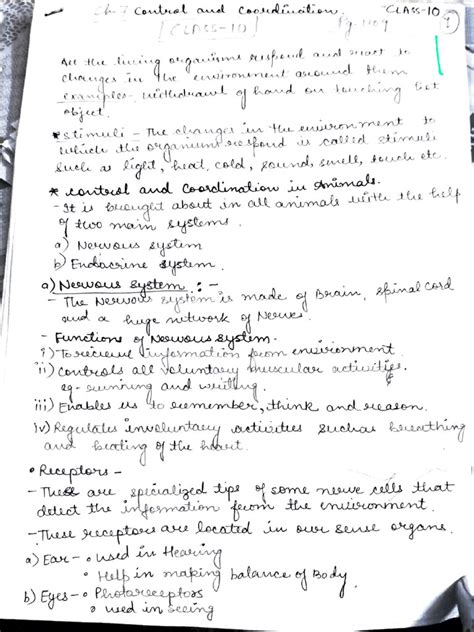 Ch-7 Control and Coordination. CLASS-10 1
[CLASS-10]
All the living organisms respond and react to
changes in the environment around them
examples- withdrawl of hand on touching hot
object.
* Stimuli - The changes in the environment to
which the organism respond is called stimuli
such as light, heat, cold, sound, smell, touch etc.
* Control and Coordination in Animals.
- It is brought about in all animals with the help
of two main systems.
a) Nervous System
b) Endocrine System.
a) Nervous System :-
- The Nervous System is made of Brain, Spinal Cord
and a huge network of Nerve.
- Functions of Nervous System.
i) To recieve information from environment.
ii) controls all voluntary muscular activities.
eg- running and writing.
iii) Enables us to remember, think and reason.
iv) Regulates involuntary activities such as breathing
and beating of the heart.
• Receptors -
- These are specialized tips of some nerve cells that
detect the information from the environment.
- These receptors are located in our sense organs.
a) Ear - • used in Hearing
• Help in making balance of Body
b) Eyes - • Photoreceptors
• used in seeing